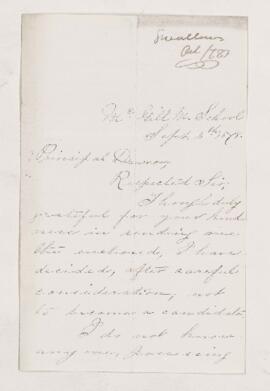 Swallow
Oct 1/78
Mc Gill M. School
Sept. 4th 1878.
Principal Dawson,
Respected Sir,
Though duly
grateful for your kind
ness in sending me
the enclosed, I have
decided, after careful
consideration, not
to become a candidate
I do not know
any one, possessing